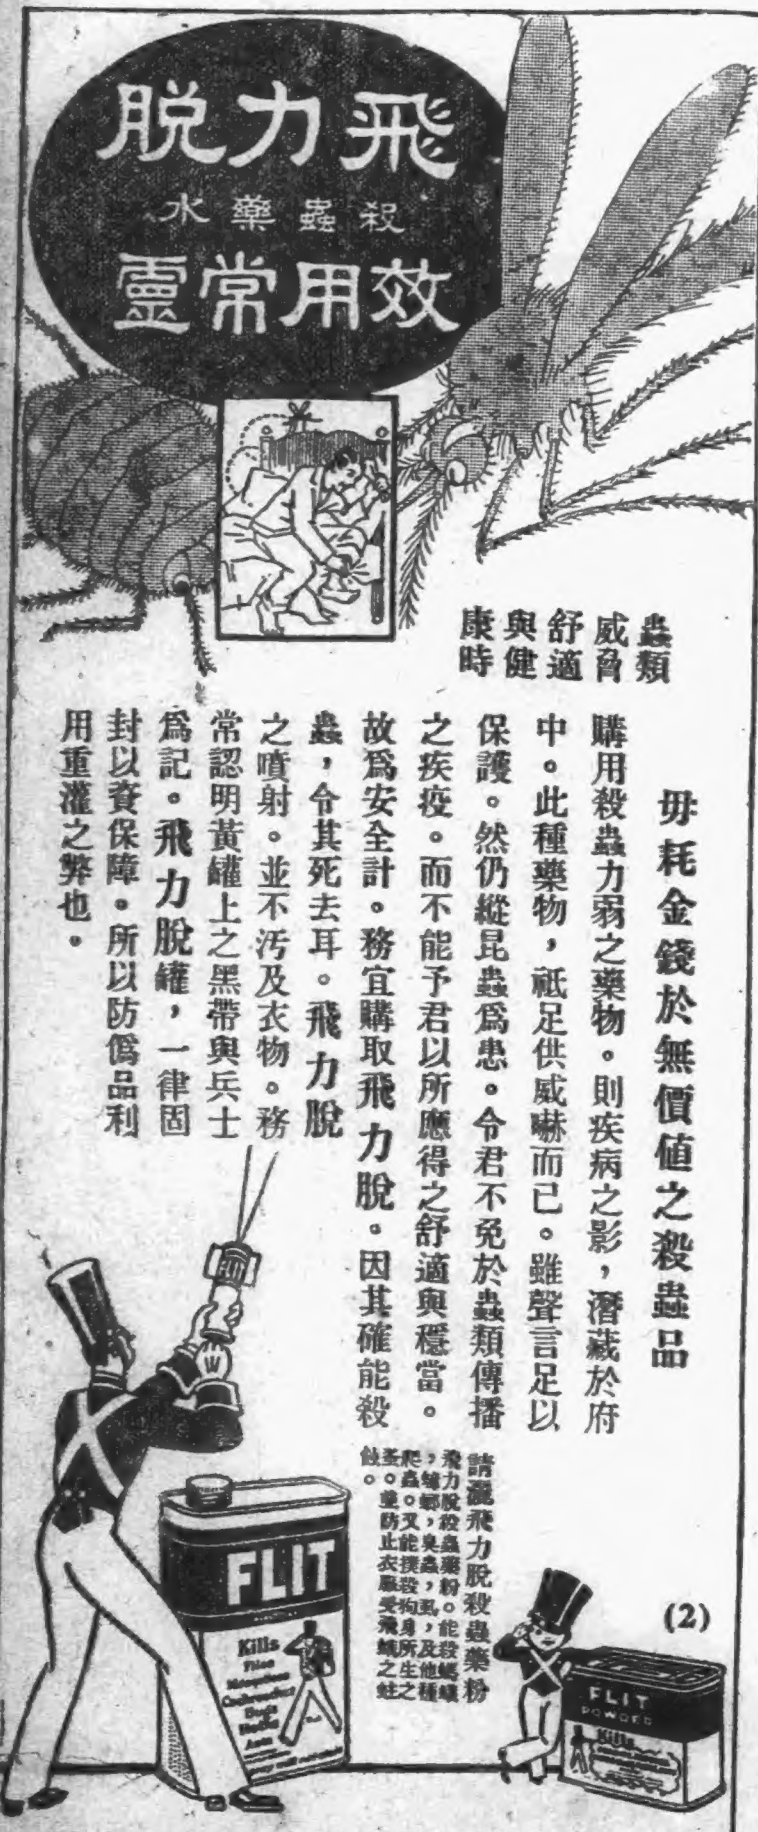 飛力脫
殺蟲藥水
效用常靈
蟲類
威脅
舒適
與健
康時
毋耗金錢於無價値之殺蟲品
購用殺蟲力弱之藥物。則疾病之影，潛藏於府
中。此種藥物，祇足供威嚇而已。雖聲言足以
保護。然仍縱昆蟲爲患。令君不免於蟲類傳播
之疾疫。而不能予君以所應得之舒適與穩當。
故爲安全計。務宜購取飛力脫。因其確能殺
蟲，令其死去耳。飛力脫
之噴射。並不汚及衣物。務
常認明黃罐上之黑帶與兵士
爲記。飛力脫罐，一律固
封以資保障。所以防僞品利
用重灌之弊也。
請灑飛力脫殺蟲藥粉
飛力脫殺蟲藥粉。能殺螞蟻
，蟑螂，臭蟲，虱，及他種
爬蟲。又能撲殺狗身所生之
蚤。並防止衣服受飛蛾之蛀
蝕。
FLIT
Kills
Flies
Mosquitoes
Cockroaches
Bugs
Moths
Ants
(2)
FLIT
POWDER
Kills